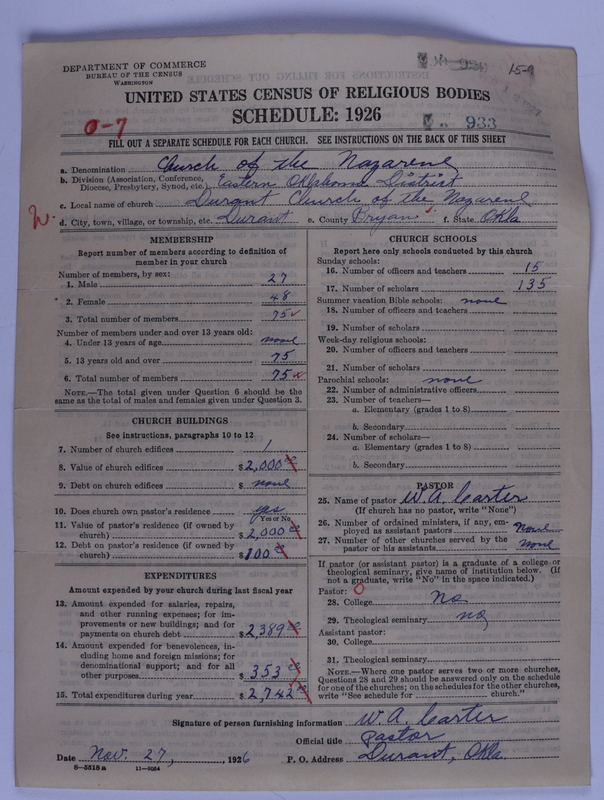 DEPARTMENT OF COMMERCE
BUREAU OF THE CENSUS
WASHINGTON
15-9
UNITED STATES CENSUS OF RELIGIOUS BODIES
SCHEDULE: 1926
0-7
933
FILL OUT A SEPARATE SCHEDULE FOR EACH CHURCH. SEE INSTRUCTIONS ON THE BACK OF THIS SHEET
a. Denomination Church of the Nazarene
b. Division (Association, Conference, Diocese, Presbytery, Synod, etc.) Eastern Oklahoma District
c. Local name of church Durant Church of the Nazarene
d. City, town, village, or township, etc. Durant e. County Bryan f. State Okla
MEMBERSHIP
Report number of members according to definition of
member in your church
Number of members, by sex:
1. Male 27
2. Female 48
3. Total number of members 75
Number of members under and over 13 years old:
4. Under 13 years of age none
5. 13 years old and over 75
6. Total number of members 75
NOTE.—The total given under Question 6 should be
same as the total of males and females given under Question 3.
CHURCH BUILDINGS
See instructions, paragraphs 10 to 12
7. Number of church edifices 1
8. Value of church edifices $ 2,000
9. Debt on church edifices $ none
10. Does church own pastor's residence yes
Yes or No
11. Value of pastor's residence (if owned by
church) $ 2,000
12. Debt on pastor's residence (if owned by
church) $ 100
EXPENDITURES
Amount expended by your church during last fiscal year
13. Amount expended for salaries, repairs,
and other running expenses; for im-
provements or new buildings; and for
payments on church debt $ 2,389
14. Amount expended for benevolences, in-
cluding home and foreign missions; for
denominational support; and for all
other purposes $ 353
15. Total expenditures during year $ 2,742
CHURCH SCHOOLS
Report here only schools conducted by this church
Sunday schools:
16. Number of officers and teachers 15
17. Number of scholars 135
Summer vacation Bible schools: none
18. Number of officers and teachers
19. Number of scholars
Week-day religious schools:
20. Number of officers and teachers
21. Number of scholars
Parochial schools: none
22. Number of administrative officers
23. Number of teachers—
a. Elementary (grades 1 to 8)
b. Secondary
24. Number of scholars—
a. Elementary (grades 1 to 8)
b. Secondary
PASTOR
25. Name of pastor W. A. Carter
(If church has no pastor, write "None")
26. Number of ordained ministers, if any, em-
ployed as assistant pastors None
27. Number of other churches served by the
pastor or his assistants none
If pastor (or assistant pastor) is a graduate of a college or
theological seminary, give name of institution below. (If
not a graduate, write "No" in the space indicated.)
Pastor: 0
28. College No
29. Theological seminary no
Assistant pastor:
30. College
31. Theological seminary
NOTE.—Where one pastor serves two or more churches,
Questions 28 and 29 should be answered only on the schedule
for one of the churches; on the schedules for the other churches,
write "See schedule for church."
Signature of person furnishing information W. A. Carter
Official title Pastor
Date Nov. 27, 1926 P. O. Address Durant, Okla.
8-5518a 11-9064